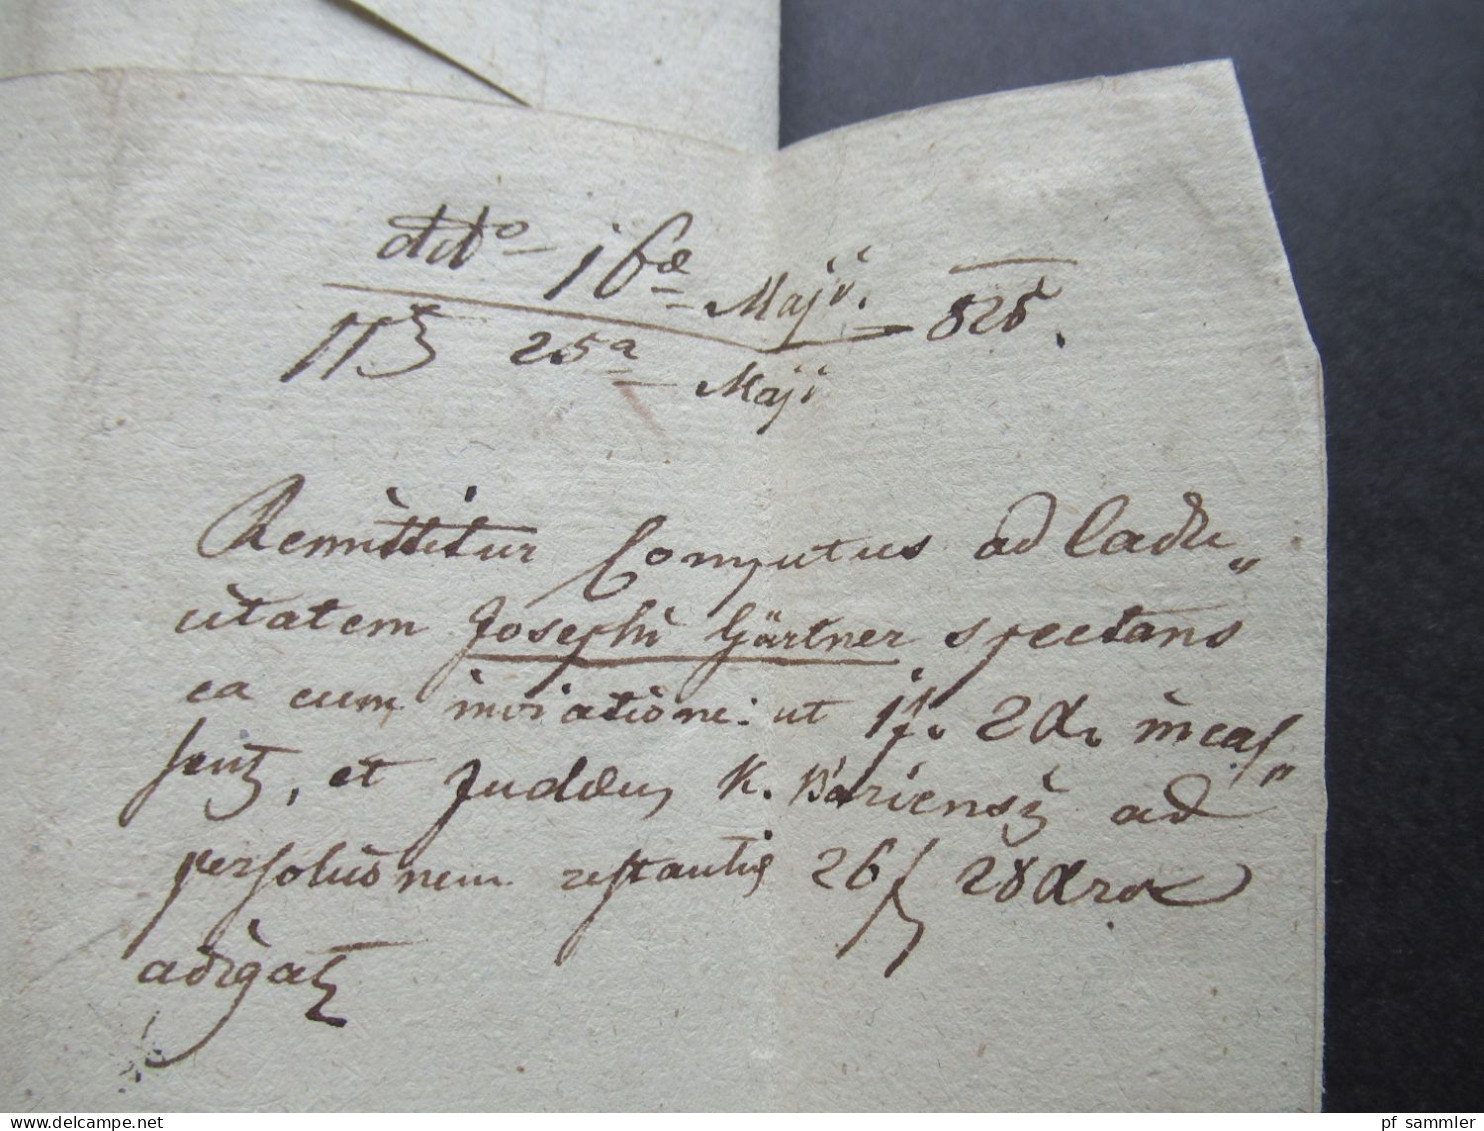 ddto 16ae Maji. 825.
25a Maji
Remittitur Computus ad Cadu„
citatem Josephi Gärtner spectans
ea cum inviatione: ut 1f. 2d. incas„
sent, et Judæus K. Báriensis ad
persolutionem restantis 26f 28dros
adigat
pf sammler